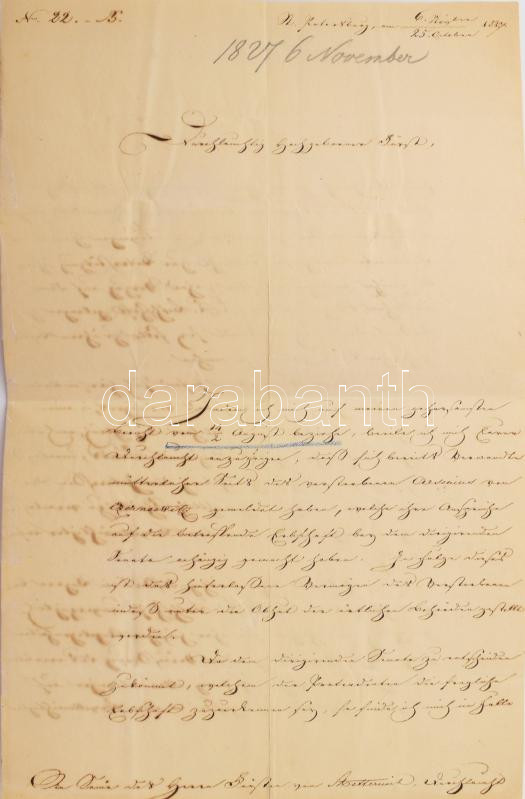 No. 22. - B.
St. Petersburg, am 6. Novbre / 25. October 1827.
1827 6 November
Durchlauchtig Hochgeborener Fürst,
Indem ich mich auf meinen gehorsamsten
Bericht vom 14/2 August beziehe, beeile ich mich Euerer
Durchlaucht anzuzeigen, daß sich bereits Verwandte
mütterlicher Seits des verstorbenen von
gemeldet haben, welche ihre Ansprüche
auf die betreffende Erbschaft bey dem dirigirenden
Senate anhängig gemacht haben. In Folge dieses
ist das hinterlassene Vermögen des Verstorbenen
unter die Obhut der örtlichen Behörden gestellt
worden.
Da dem dirigirenden Senate zu entscheiden
zukömmt, welchem der Pretendenten die fragliche
Erbschaft zuzuerkennen sey, so finde ich mich im Falle
des Herrn Fürsten von Metternich, Durchlaucht
darabanth